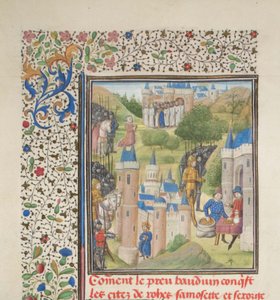 Coment le preu bauduin conqst
les citez de rohez samosete et serorge